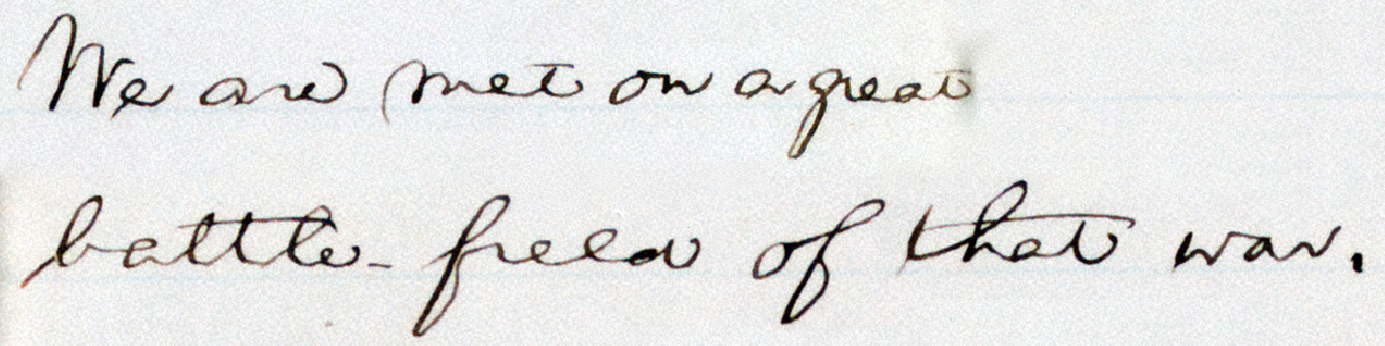 We are met on a great
battle-field of that war.